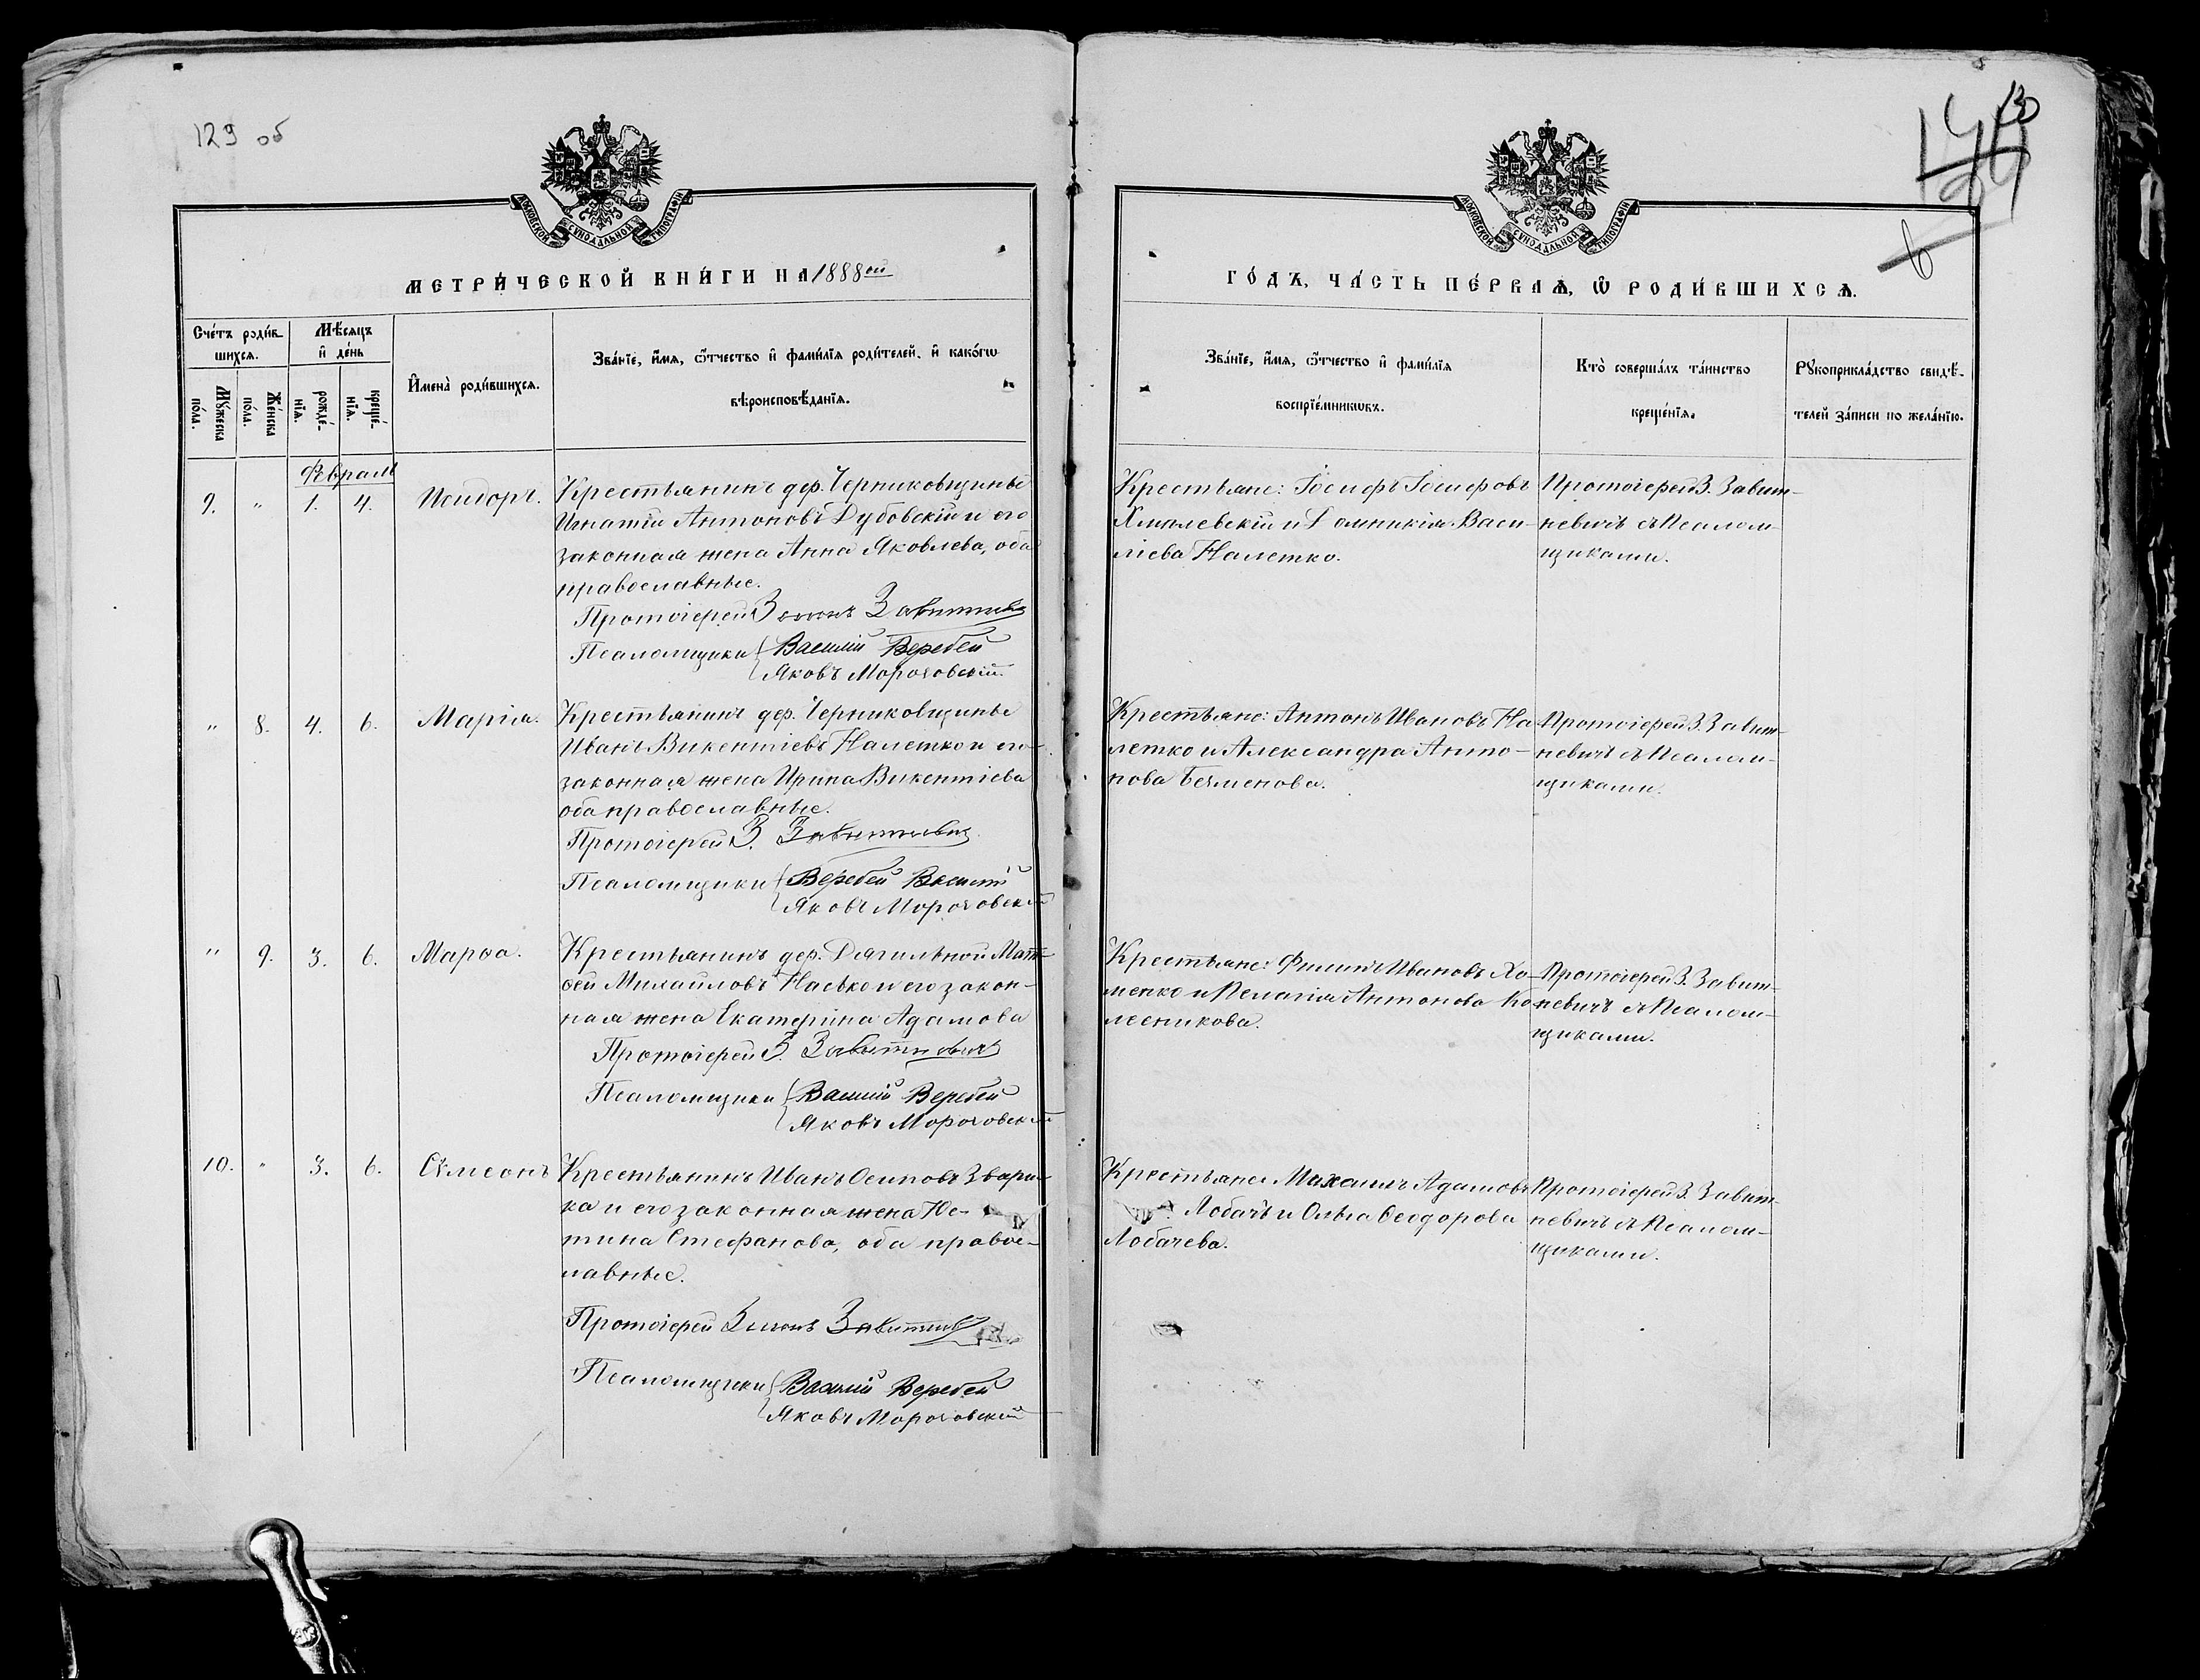 129 об
МОСКОВСКОЙ СѴНОДАЛЬНОЙ ТИПОГРАФІИ
МЕТРИ́ЧЕСКОЙ КНИ́ГИ НА 1888ой
Сче́тъ роди́в-
шихсѧ.
Мѣ́сѧцъ
и҆ де́нь
Мꙋ́жеска
по́ла.
Же́нска
по́ла.
рожде́-
нїѧ.
креще́-
нїѧ.
И҆мена̀ роди́вшихсѧ.
Зва́нїе, и҆́мѧ, ѻ҆́тчество и҆ фами́лїѧ роди́телей, и҆ како́гѡ
вѣроисповѣ́данїѧ.
Февраль
9. " 1. 4. Исидоръ.
Крестьянинъ дер. Черниковщины
Игнатій Антоновъ Дубовскій и его
законная жена Анна Яковлева, оба
православные.
Протоіерей З Завитневичъ
Псаломщики Василій Веребей
Яковъ Морочовскій.
" 8. 4. 6. Марія.
Крестьянинъ дер. Черниковщины
Иванъ Викентіевъ Налетко и его
законная жена Ирина Викентіева
оба православные.
Протоіерей З. Завитневичъ
Псаломщики Веребей Василій
Яковъ Морочовскій
" 9. 3. 6. Марѳа.
Крестьянинъ дер. Дягильной Мат-
ѳей Михайловъ Насько и его закон-
ная жена Екатерина Адамова
Протоіерей З. Завитневичъ
Псаломщики Василій Веребей
Яковъ Морочовскій
10. " 3. 6. Сѵмеонъ
Крестьянинъ Иванъ Осиповъ Звари-
ка и его законная жена Юс-
тина Стефанова, оба правос-
лавные.
Протоіерей Завитневичъ
Псаломщики Василій Веребей
Яковъ Морочовскій
6
МОСКОВСКОЙ СѴНОДАЛЬНОЙ ТИПОГРАФІИ
ГО́ДЪ, ЧА́СТЬ ПЕ́РВАѦ, Ѡ҆ РОДИ́ВШИХСѦ.
Зва́нїе, и҆́мѧ, ѻ҆́тчество и҆ фами́лїѧ
воспрїе́мникѡвъ.
Кто̀ соверша́лъ та́инство
креще́нїѧ.
Рꙋкоприкла́дство свидѣ́-
телей за́писи по жела́нїю.
Крестьяне: Іосифъ Іосифовъ
Хмилевскій и Домникія Васи-
ліева Налетко.
Протоіерей З. Завит-
невичъ съ Псалом-
щиками.
Крестьяне: Антонъ Ивановъ На-
летко и Александра Анто-
нова Бекменова.
Протоіерей З. Завит-
невичъ съ Псалом-
щиками.
Крестьяне: Филипъ Ивановъ Хо-
менко и Пелагія Антонова Ко-
лесникова.
Протоіерей З. Завит-
невичъ съ Псалом-
щиками.
Крестьяне Михаилъ Адамовъ
Лобачъ и Ольга Ѳеодорова
Лобачева.
Протоіерей З. Завит-
невичъ съ Псалом-
щиками.